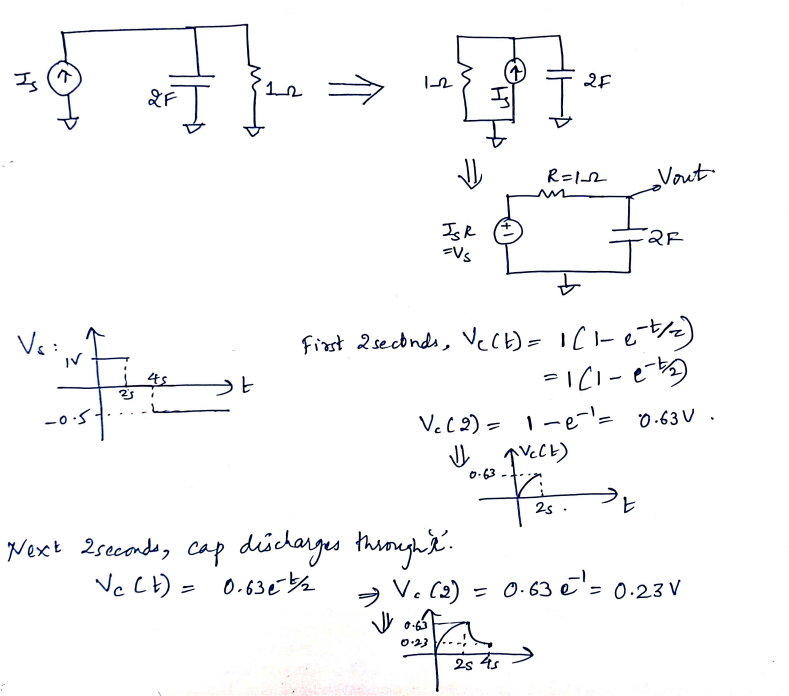 Is
2F
1Ω
⇒
1Ω
Is
2F
⇓
R=1Ω
Vout
IsR
=Vs
2F
Vs:
1V
2s
4s
t
-0.5
First 2 seconds, Vc(t) = 1(1-e^-t/2)
= 1(1-e^-t/2)
Vc(2) = 1-e^-1 = 0.63V.
⇓
Vc(t)
0.63
2s.
t
Next 2 seconds, cap discharges through 'R'.
Vc(t) = 0.63e^-t/2 ⇒ Vc(2) = 0.63 e^-1 = 0.23V
⇓
0.63
0.23
2s 4s